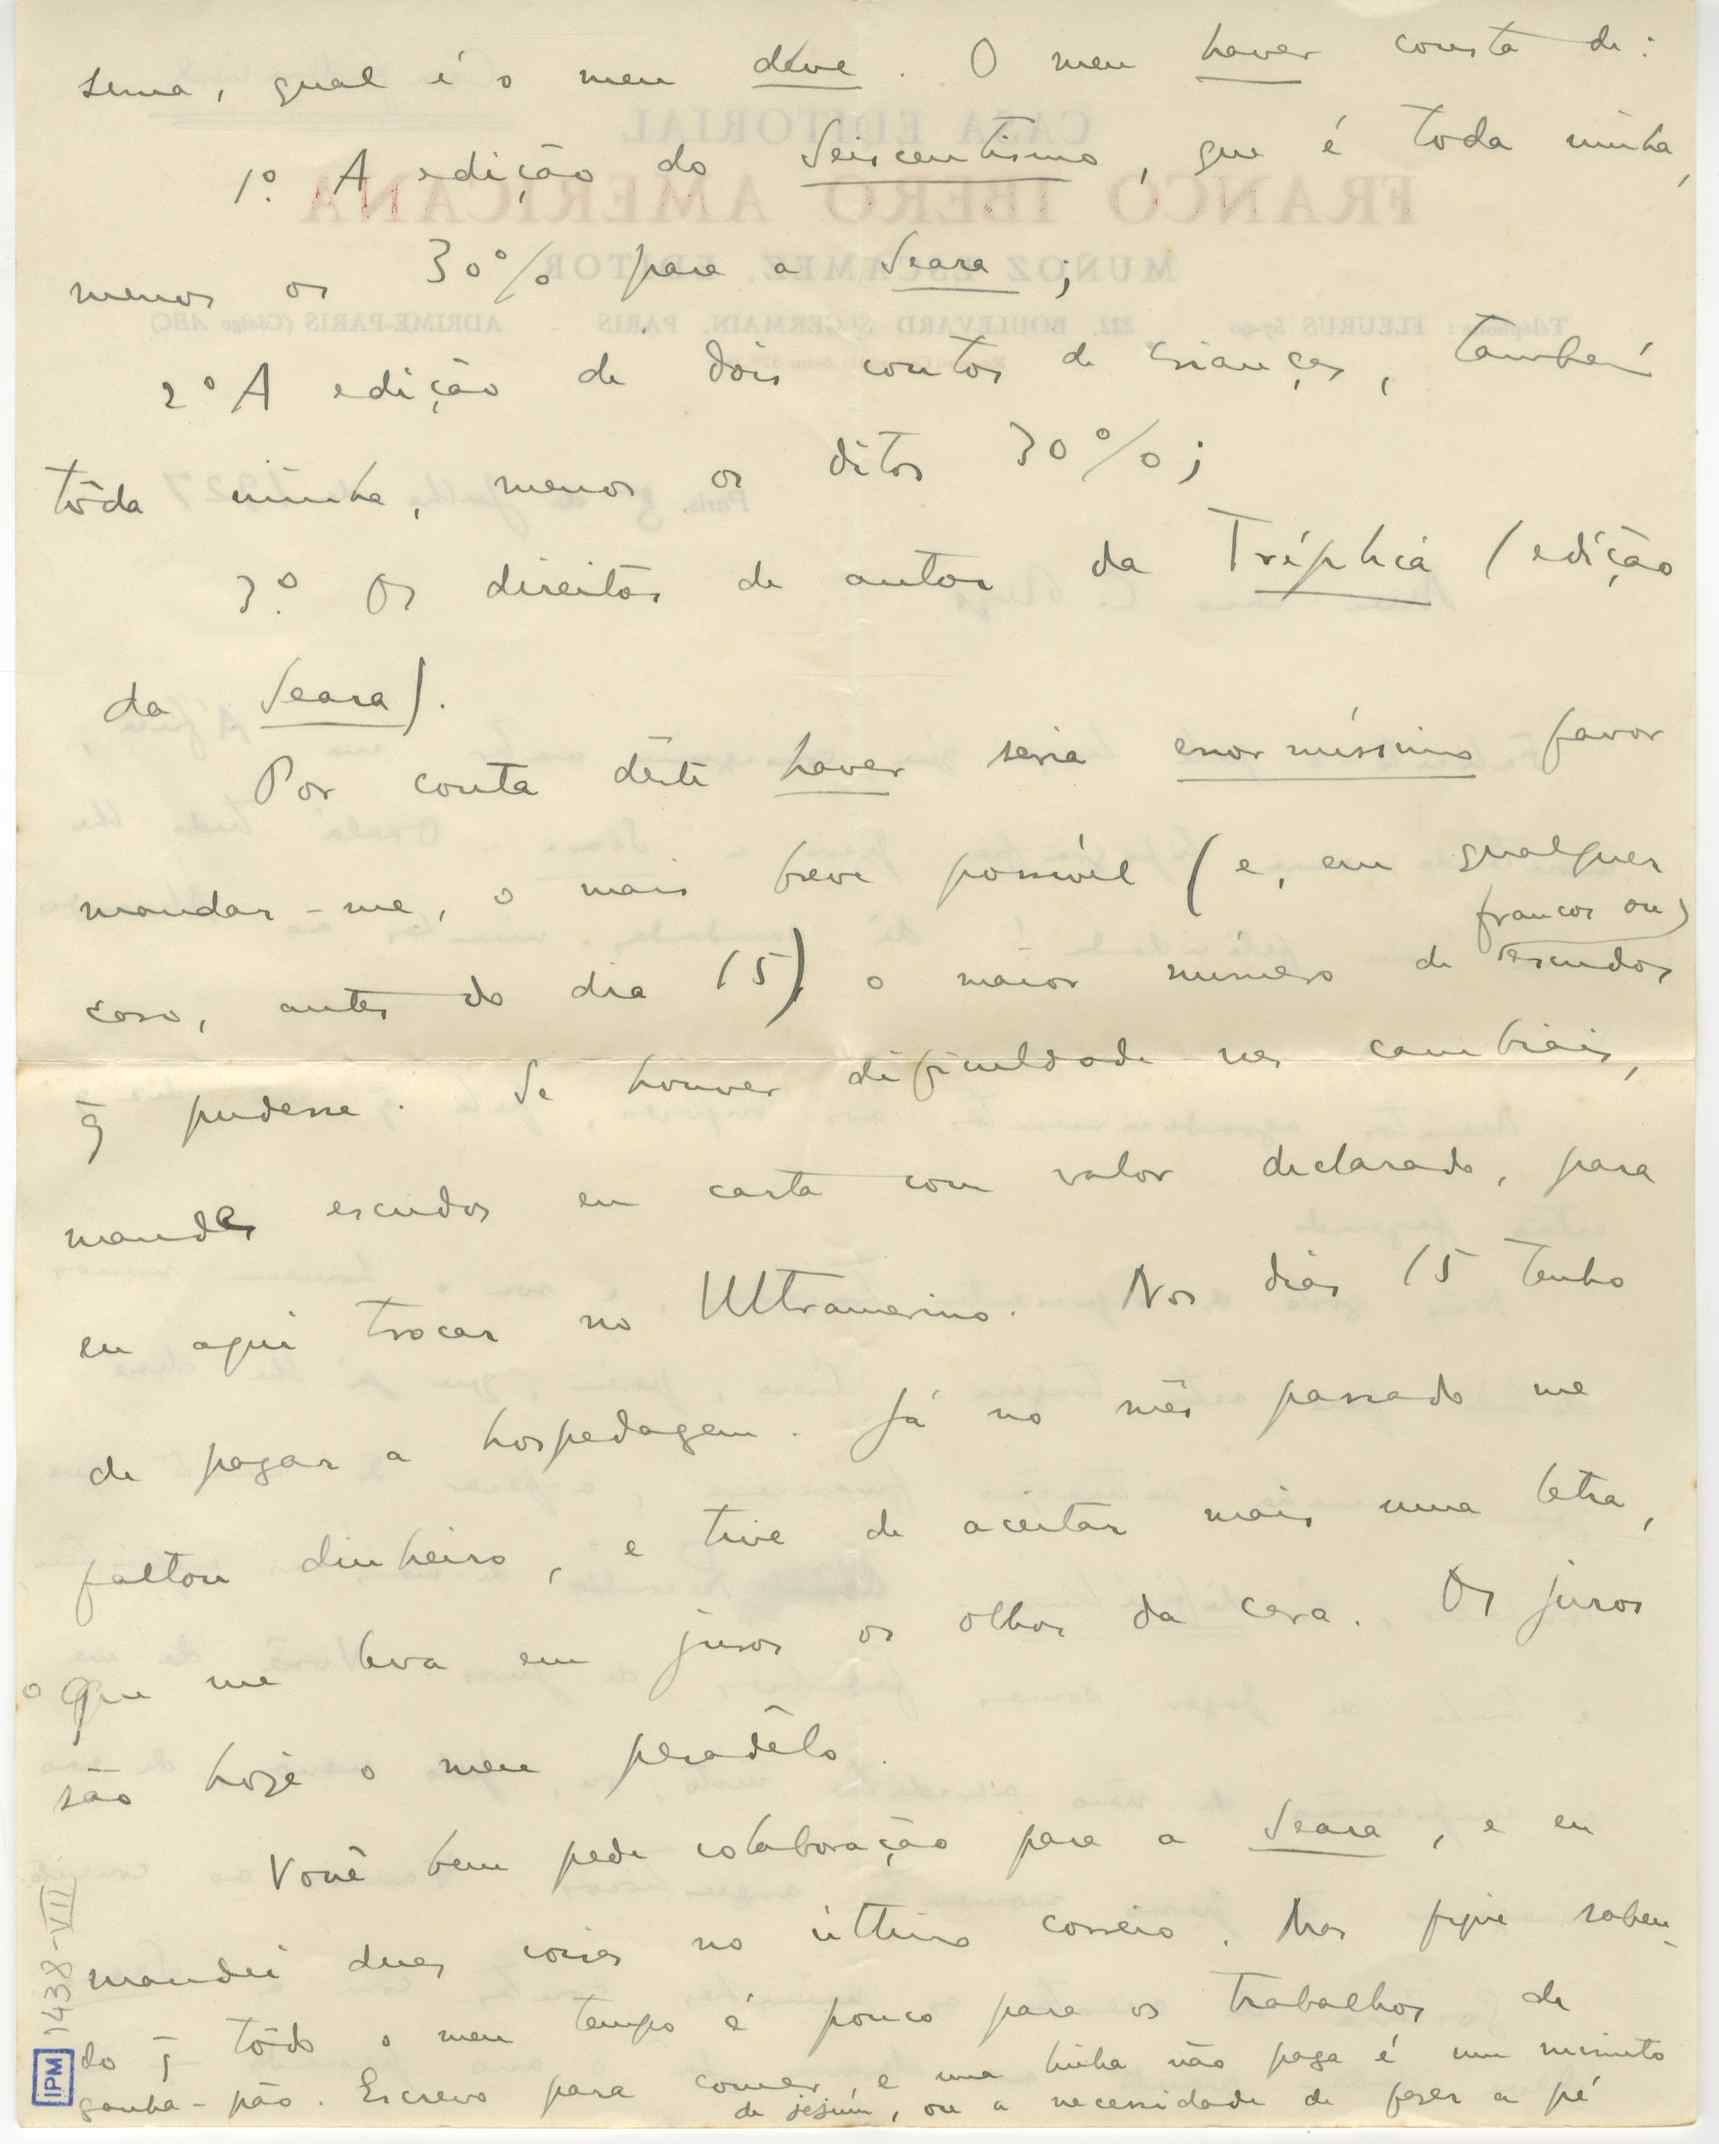 soma, qual é o meu deve. O meu haver consta de:
1º. A edição do Seiscentismo, que é toda minha,
menos os 30% para a Seara;
2º A edição de dois contos de crianças, também
tôda minha, menos os ditos 30%;
3º. Os direitos de autor da Tréplica (edição
da Seara).
Por conta dêste haver seria enormíssimo favor
mandar-me, o mais breve possível (e, em qualquer
caso, antes do dia 15) o maior numero de francos ou escudos
q̄ pudesse. Se houver dificuldade nas cambiais,
mande escudos em carta com valor declarado, para
eu aqui trocar no Ultramarino. Nos dias 15 tenho
de pagar a hospedagem. Já no mês passado me
faltou dinheiro, e tive de aceitar mais uma letra,
o que me leva em juros os olhos da cara. Os juros
são hoje o meu pesadêlo.
Você bem pede colaboração para a Seara, e eu
mandei duas coisas no último correio. Mas fique saben-
do q̄ tôdo o meu tempo é pouco para os trabalhos de
ganha-pão. Escrevo para comer, e uma linha não paga é um minuto
de jejum, ou a necessidade de fazer a pé
1438-VII
IPM
CASA EDITORIAL
FRANCO IBERO AMERICANA
MUNOZ ESCAMEZ, EDITOR
Téléphone: FLEURUS 222, BOULEVARD St GERMAIN, PARIS - ADRIME-PARIS (Código ABC)
Paris, 3 de Julho 1927